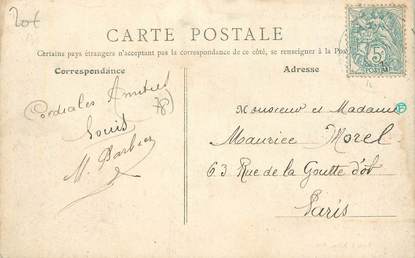 20€
CARTE POSTALE
Certains pays étrangers n'acceptant pas la correspondance de ce côté, se renseigner à la Poste
Correspondance
Adresse
Cordiales Amitiés
Louis
M. Barbier
78
5
Monsieur et Madame
Maurice Morel
63 Rue de la Goutte d'or
Paris